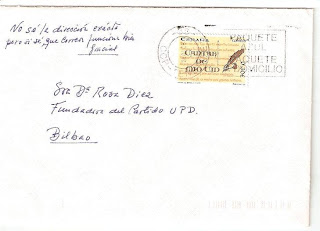 No sé la dirección exacta
pero sí sé que correos funciona bien
Gracias
ESPAÑA
CANTAR
DE
MIO CID
PAQUETE
AZUL
PAQUETE
DOMICILIO
Sra Dª Rosa Diez
Fundadora del Partido UPD.
Bilbao